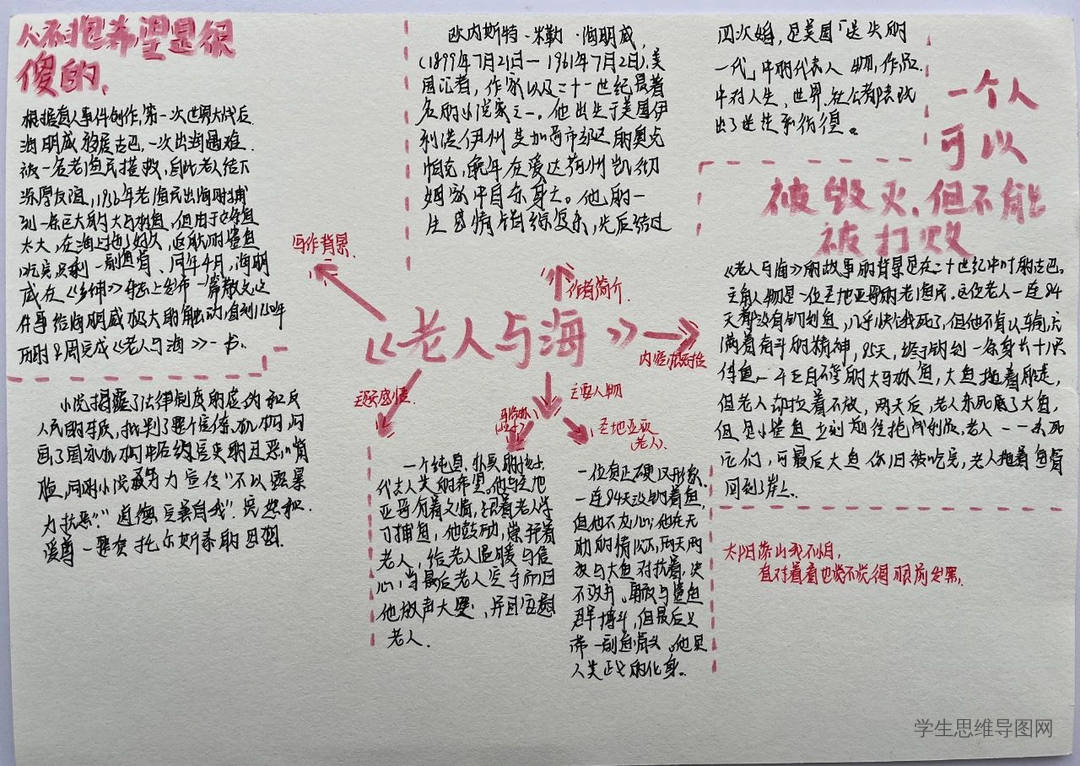 人不抱希望是很
傻的.
根据真人事件创作,第一次世界大战后
海明威移居古巴,一次出海遇难.
被一名老渔民搭救,自此老人结下
深厚友谊,1936年老渔民出海时捕
到一条巨大的大马林鱼,但由于这条鱼
太大,在海上拖了很久,返航时鲨鱼
吃完只剩一副鱼骨.同年4月,海明
威在《乡绅》杂志上发布一篇散文,这
件事给海明威极大的触动,直到1950年
历时8周完成《老人与海》一书.
写作背景.
欧内斯特·米勒·海明威,
(1899年7月21日—1961年7月2日),美
国记者,作家以及二十世纪最著
名的小说家之一。他出生于美国伊
利诺伊州芝加哥市郊区的奥克
帕克,晚年在爱达荷州凯彻
姆家中自杀身亡。他的一
生感情错综复杂,先后结过
四次婚,是美国「迷失的
一代」中的代表人物,作品
中对人生,世界,社会都表现
出了迷茫和彷徨。
作者简介.
一个人
可以
被毁灭,但不能
被打败
《老人与海》
内容
《老人与海》的故事的背景是在二十世纪中叶的古巴。
主角人物是一位圣地亚哥的老渔民。这位老人一连84
天都没有钓到鱼,几乎快饿死了,但他不肯认输,充
满着奋斗的精神,85天,终于钓到一条身长十八尺
体重一千五百磅的大马林鱼,大鱼拖着船走,
但老人却拉着不放,两天后,老人杀死了大鱼,
但是小鲨鱼立刻前往抢战利版,老人一一杀死
它们,可最后大鱼依旧被吃完,老人拖着鱼骨
回到了岸上。
小说揭露了法律制度的虚伪和民
人民的
脸,同时小说极力宣传"不以暴
力抗恶","道德完善自我",
一聂赫 托尔斯泰的思想.
主要人物
圣地亚哥
(老人).
一个纯真,朴实的
代表人类的希望。他与圣地
亚哥有着友情,跟着老人学
习捕鱼,他鼓励,崇拜着
老人,给老人温暖与信
心,当最后老人空手而归
他放声大哭,并且安慰
老人.
一位真正硬汉形象.
一连84天没钓着鱼,
但他不灰心;他在无
助的情况下,两天两
夜与大鱼对抗着,决
不放弃,再度与鲨鱼
群搏斗,但最后只
带一副鱼骨头。他是
人类正义的化身。
太阳落山我不怕,
直对着看也
学生思维导图网